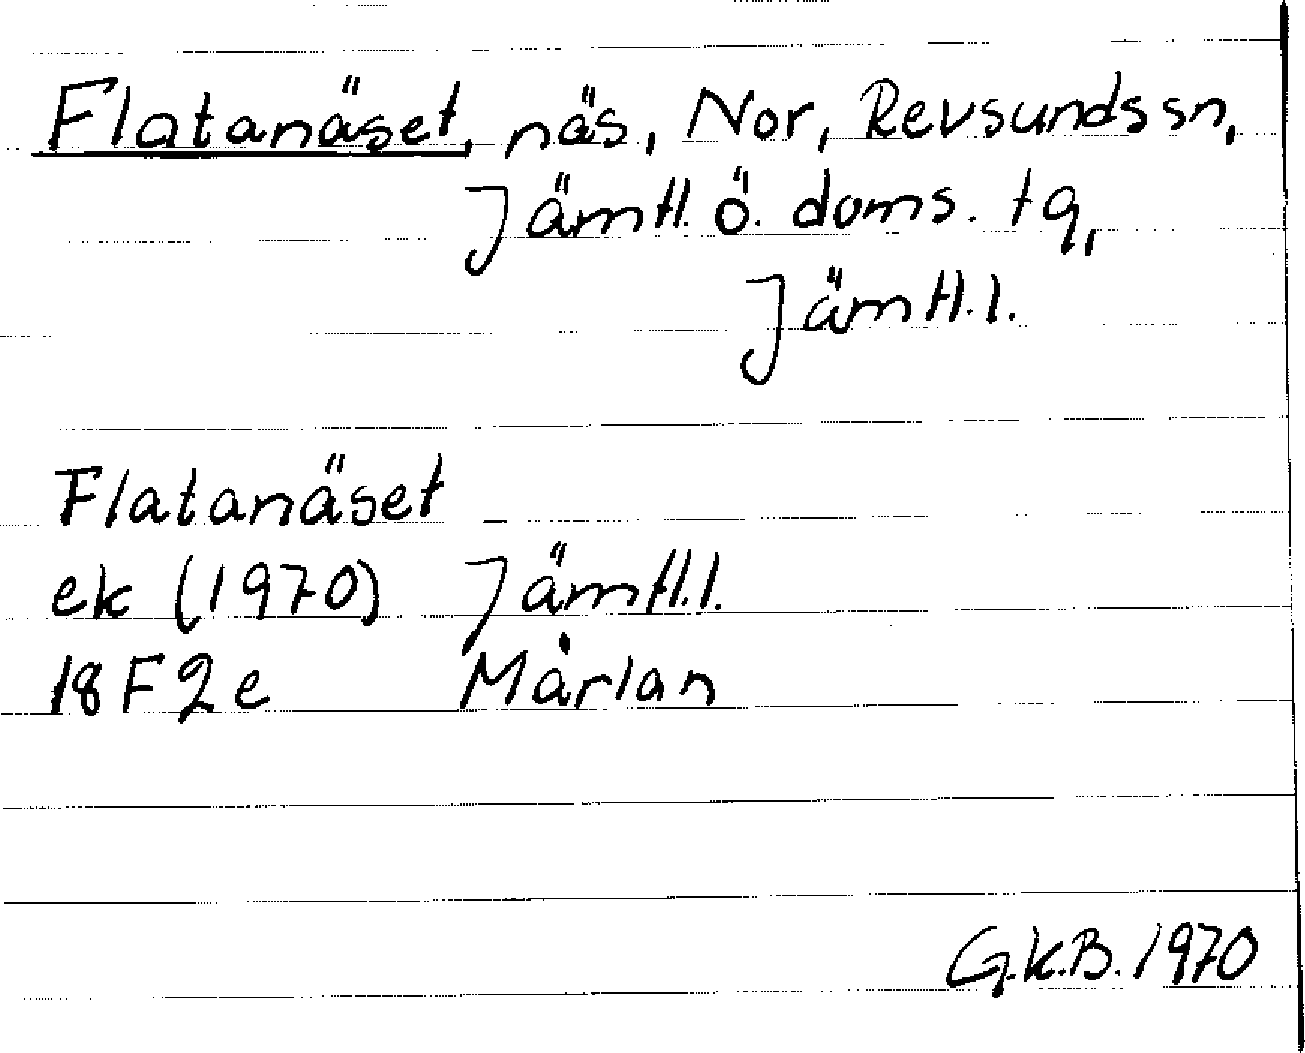 Flatanäset, näs, Nor, Revsunds sn,
Jämtl. ö. doms. tg,
Jämtl. l.
Flatanäset
ek (1970) Jämtl. l.
18F2e Mårlan
G.K.B. 1970